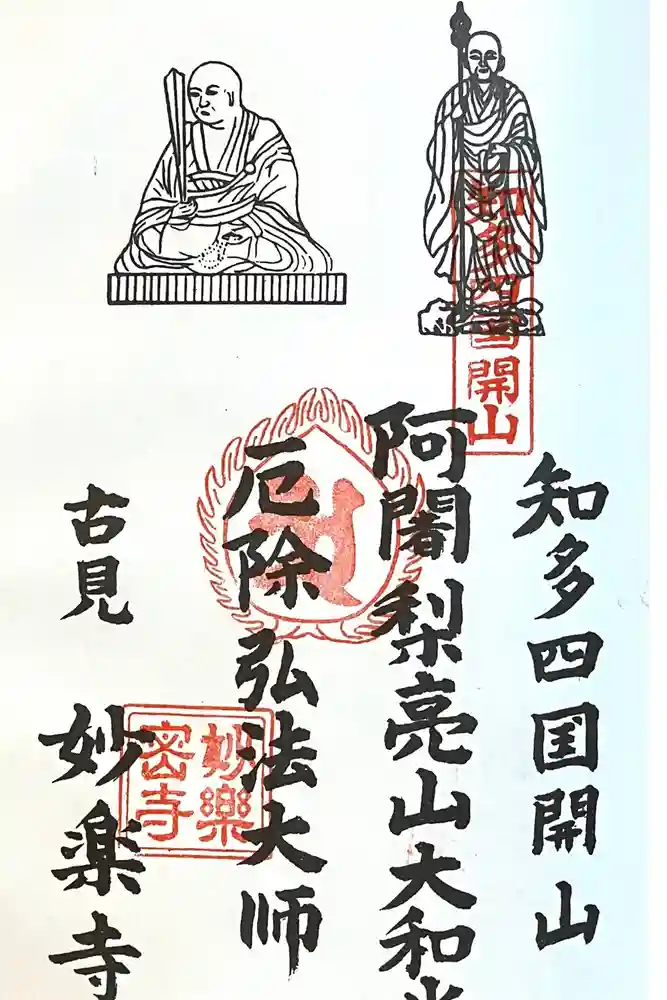 知多四国開山
知多四国開山
阿闍梨亮山大和
厄除弘法大師
妙樂
密寺
古見
妙楽寺